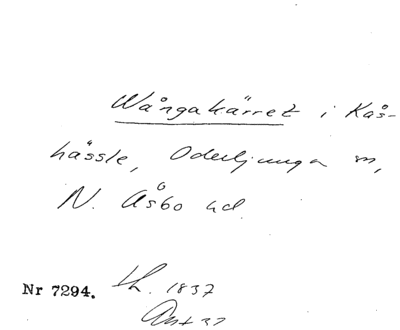 Wångakärret i Kås-
hässle, Oderljunga sn,
N. Åsbo hd.
Nr 7294. th. 1837
Ant 37